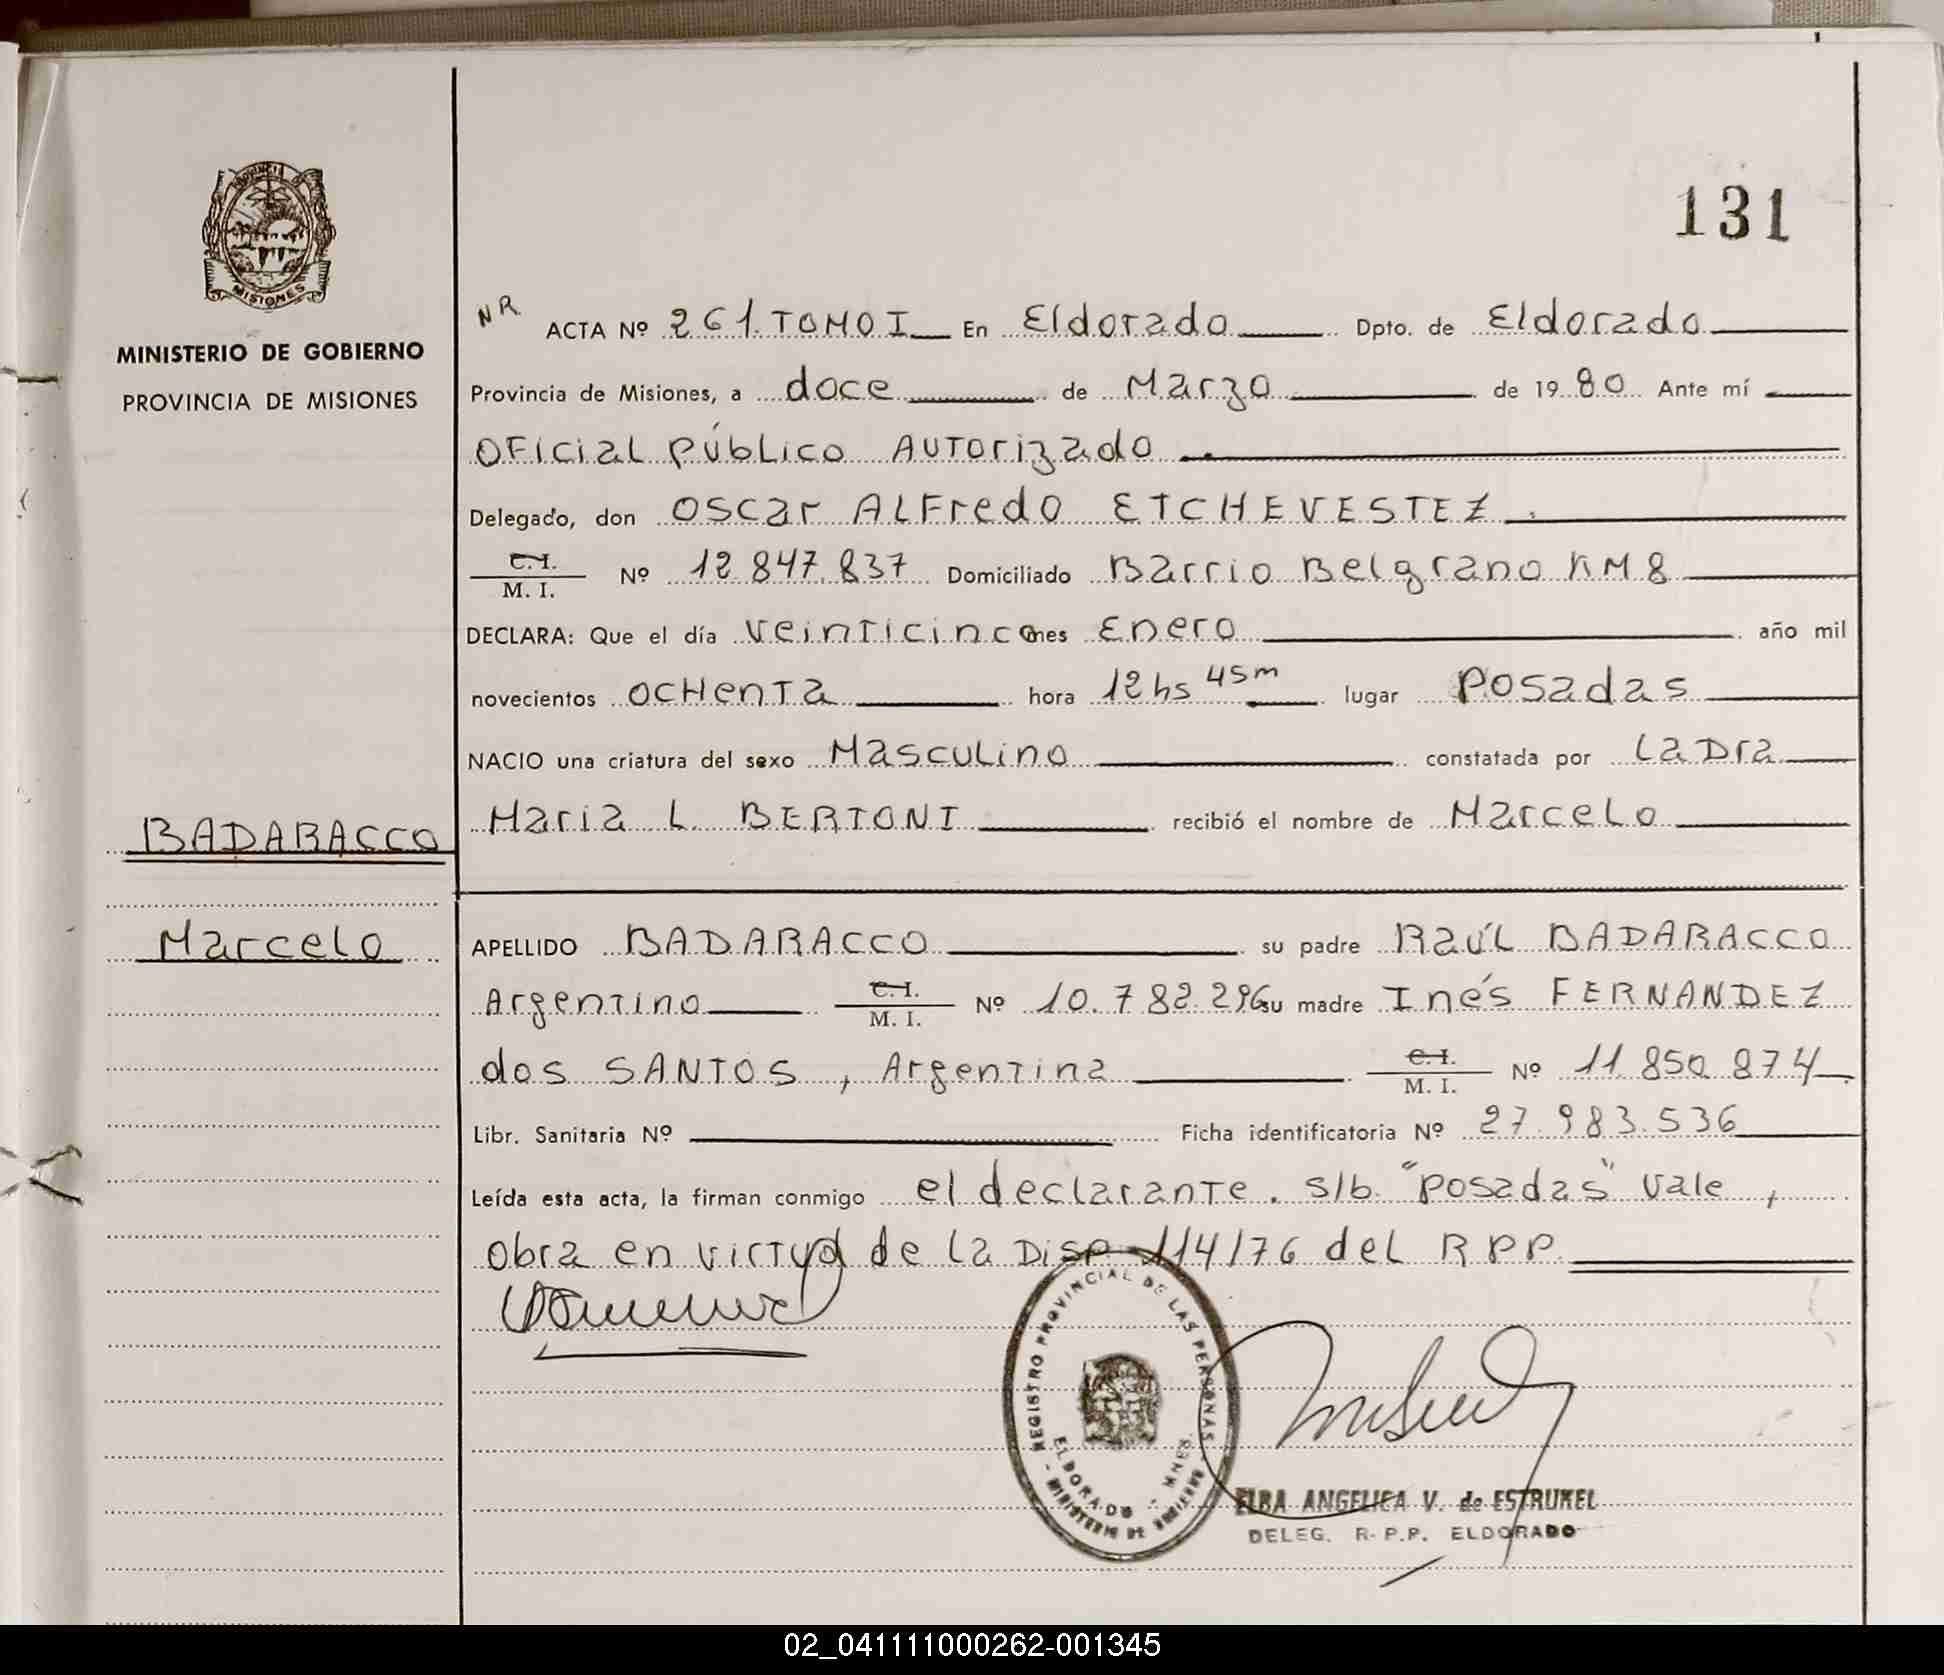 131
MINISTERIO DE GOBIERNO
PROVINCIA DE MISIONES
MISIONES
BADARACCO
Marcelo
NR ACTA Nº 261 TOMO I En Eldorado Dpto. de Eldorado
Provincia de Misiones, a doce de Marzo de 1980 Ante mí
Oficial Público Autorizado
Delegado, don Oscar Alfredo ETCHEVESTEZ
C.I. M. I. Nº 12.847.837 Domiciliado Barrio Belgrano KM 8
DECLARA: Que el día veinticinco mes Enero año mil
novecientos ochenta hora 12 hs 45m lugar Posadas
NACIO una criatura del sexo Masculino constatada por la Dra
Maria L. BERTONI recibió el nombre de Marcelo
APELLIDO BADARACCO su padre Raúl BADARACCO
Argentino C.I. M. I. Nº 10.782.296 su madre Inés FERNANDEZ
dos SANTOS, Argentina C.I. M. I. Nº 11.850.874
Libr. Sanitaria Nº Ficha identificatoria Nº 27.983.536
Leída esta acta, la firman conmigo el declarante. s/b. "Posadas" vale,
obra en virtud de la Disp. 114/76 del RPP.
REGISTRO PROVINCIAL DE LAS PERSONAS
ELDORADO - MNES.
MINISTERIO DE GOBIERNO
ELBA ANGELICA V. de ESTRUKEL
DELEG. R.P.P. ELDORADO
02_041111000262-001345